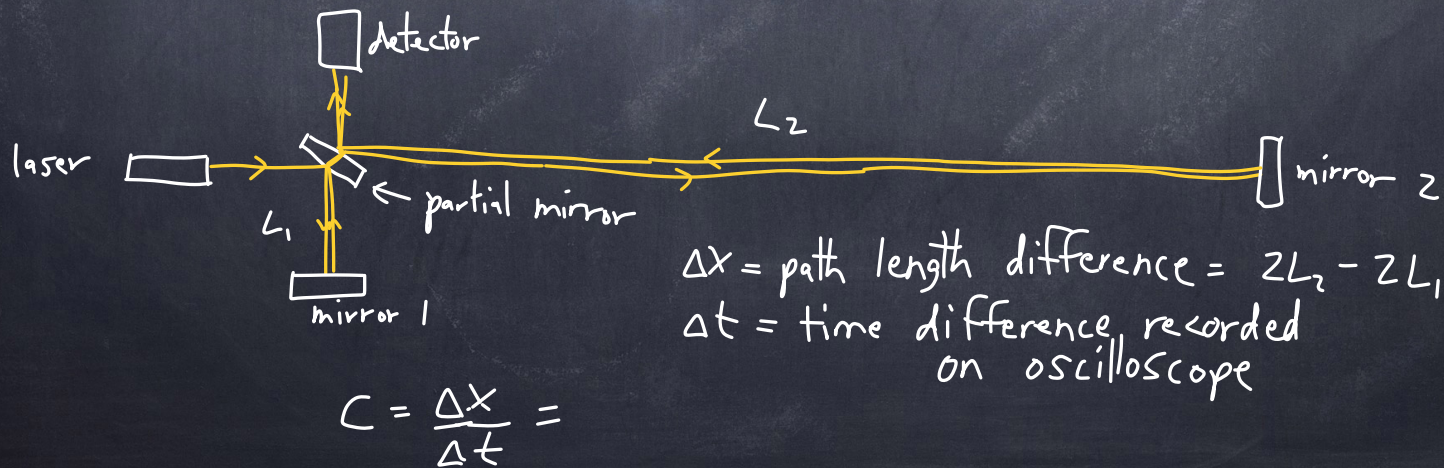 detector
L₂
laser
mirror 2
partial mirror
L₁
Δx = path length difference = 2L₂ - 2L₁
mirror 1
Δt = time difference recorded
on oscilloscope
C = Δx/Δt =